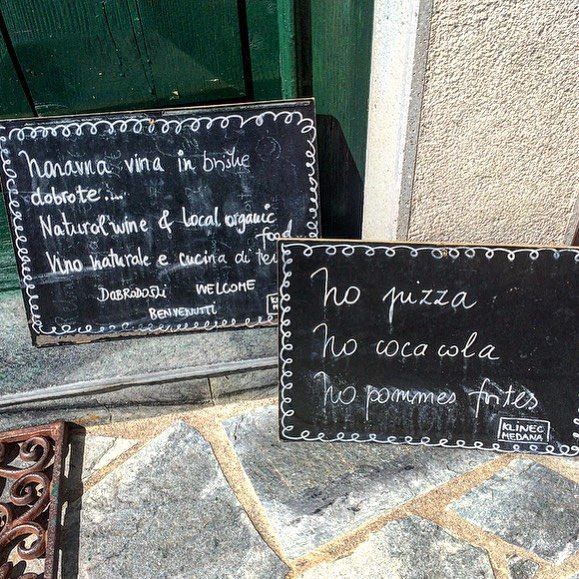 Naravna vina in briške
dobrote....
Natural wine & Local organic
food
Vino naturale e cucina di
DOBRODOŠLI WELCOME
BENVENUTI
No pizza
No coca cola
No pommes frites
KLINEC
MEDANA